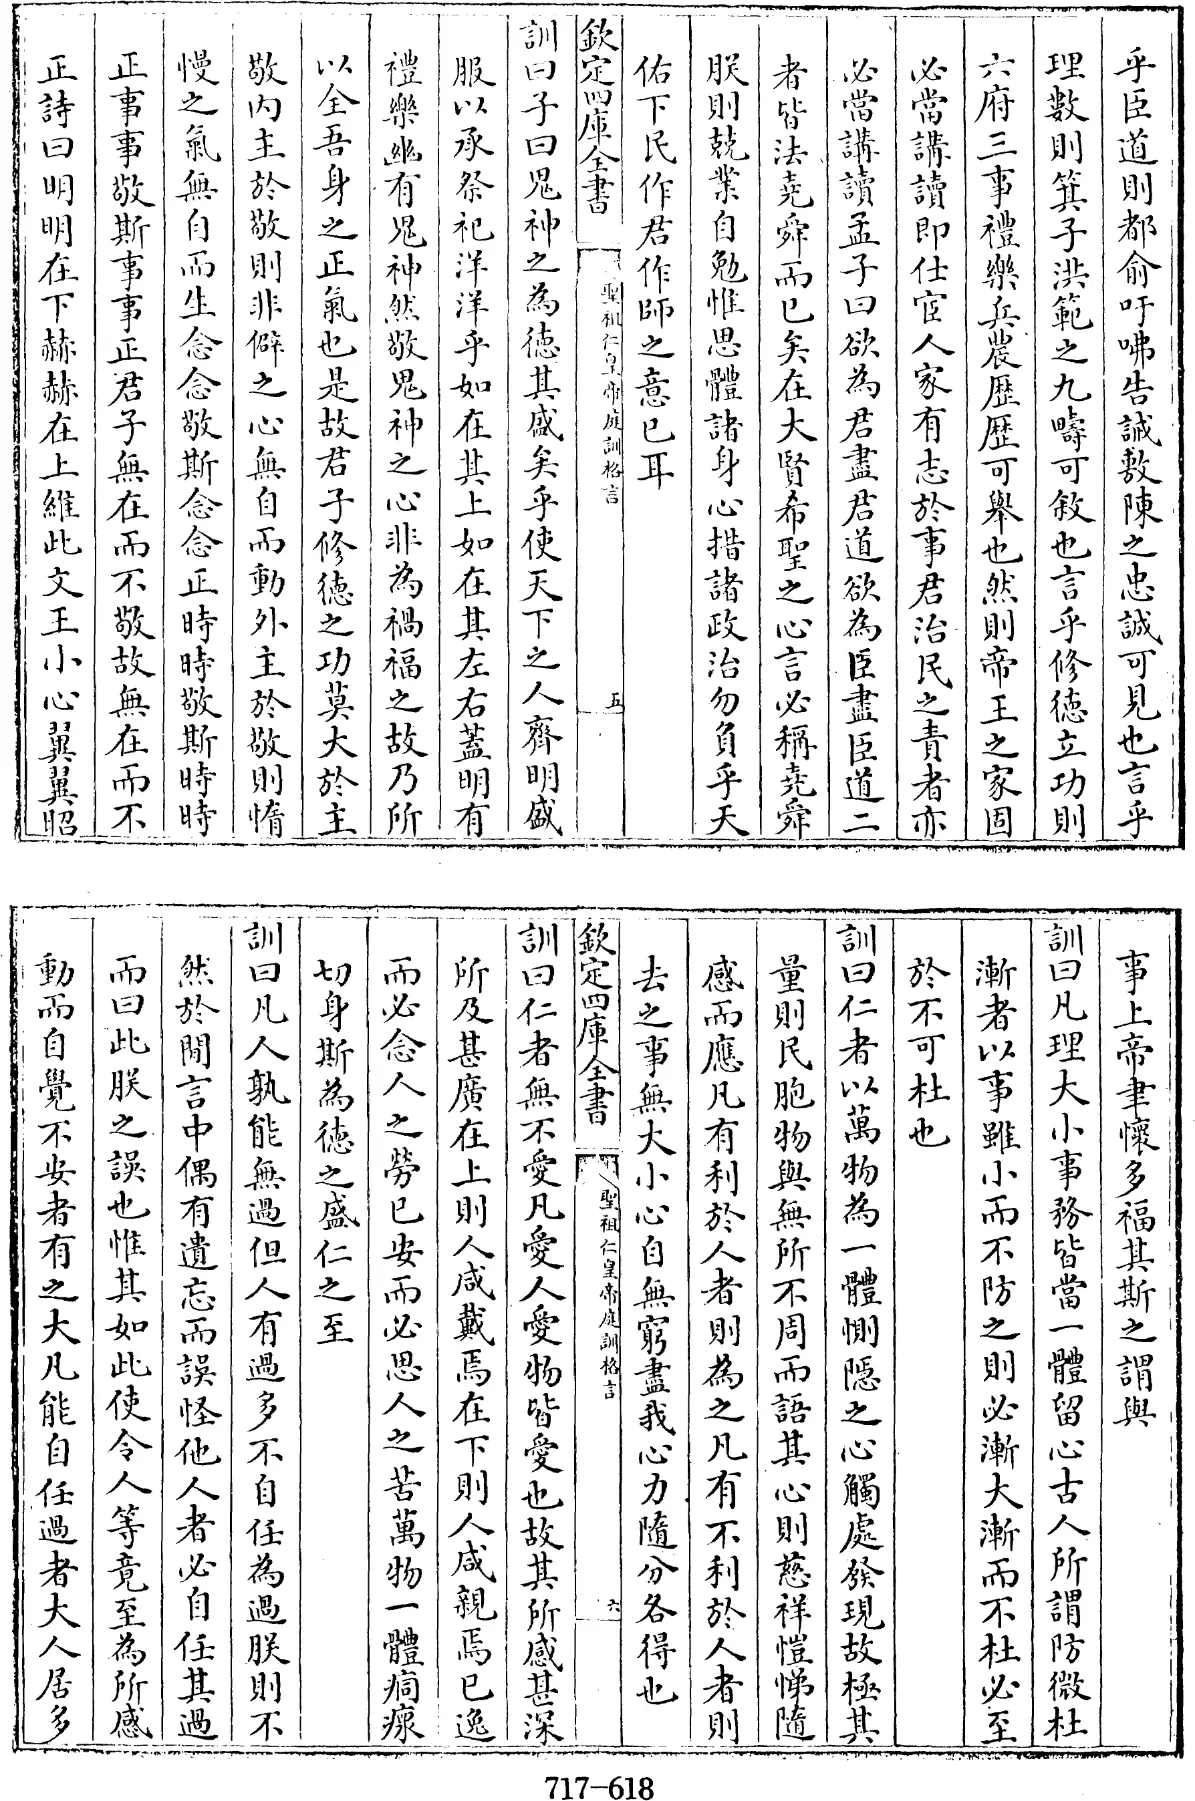 乎臣道則都俞吁咈告誡敷陳之忠誠可見也言乎
理數則箕子洪範之九疇可敘也言乎修德立功則
六府三事禮樂兵農歷歷可舉也然則帝王之家固
必當講讀即仕宦人家有志於事君治民之責者亦
必當講讀孟子曰欲為君盡君道欲為臣盡臣道二
者皆法堯舜而已矣在大賢希聖之心言必稱堯舜
朕則兢業自勉惟思體諸身心措諸政治勿負乎天
佑下民作君作師之意已耳
欽定四庫全書
聖祖仁皇帝庭訓格言
五
訓曰子曰鬼神之為德其盛矣乎使天下之人齊明盛
服以承祭祀洋洋乎如在其上如在其左右蓋明有
禮樂幽有鬼神然敬鬼神之心非為禍福之故乃所
以全吾身之正氣也是故君子修德之功莫大於主
敬內主於敬則非僻之心無自而動外主於敬則惰
慢之氣無自而生念念敬斯念念正時時敬斯時時
正事事敬斯事事正君子無在而不敬故無在而不
正詩曰明明在下赫赫在上維此文王小心翼翼昭
事上帝聿懷多福其斯之謂與
訓曰凡理大小事務皆當一體留心古人所謂防微杜
漸者以事雖小而不防之則必漸大漸而不杜必至
於不可杜也
訓曰仁者以萬物為一體惻隱之心觸處發現故極其
量則民胞物與無所不周而語其心則慈祥愷悌隨
感而應凡有利於人者則為之凡有不利於人者則
去之事無大小心自無窮盡我心力隨分各得也
欽定四庫全書
聖祖仁皇帝庭訓格言
六
訓曰仁者無不愛凡愛人愛物皆愛也故其所感甚深
所及甚廣在上則人咸戴焉在下則人咸親焉己逸
而必念人之勞己安而必思人之苦萬物一體痌瘝
切身斯為德之盛仁之至
訓曰凡人孰能無過但人有過多不自任為過朕則不
然於閒言中偶有遺忘而誤怪他人者必自任其過
而曰此朕之誤也惟其如此使令人等竟至為所感
動而自覺不安者有之大凡能自任過者大人居多
717-618